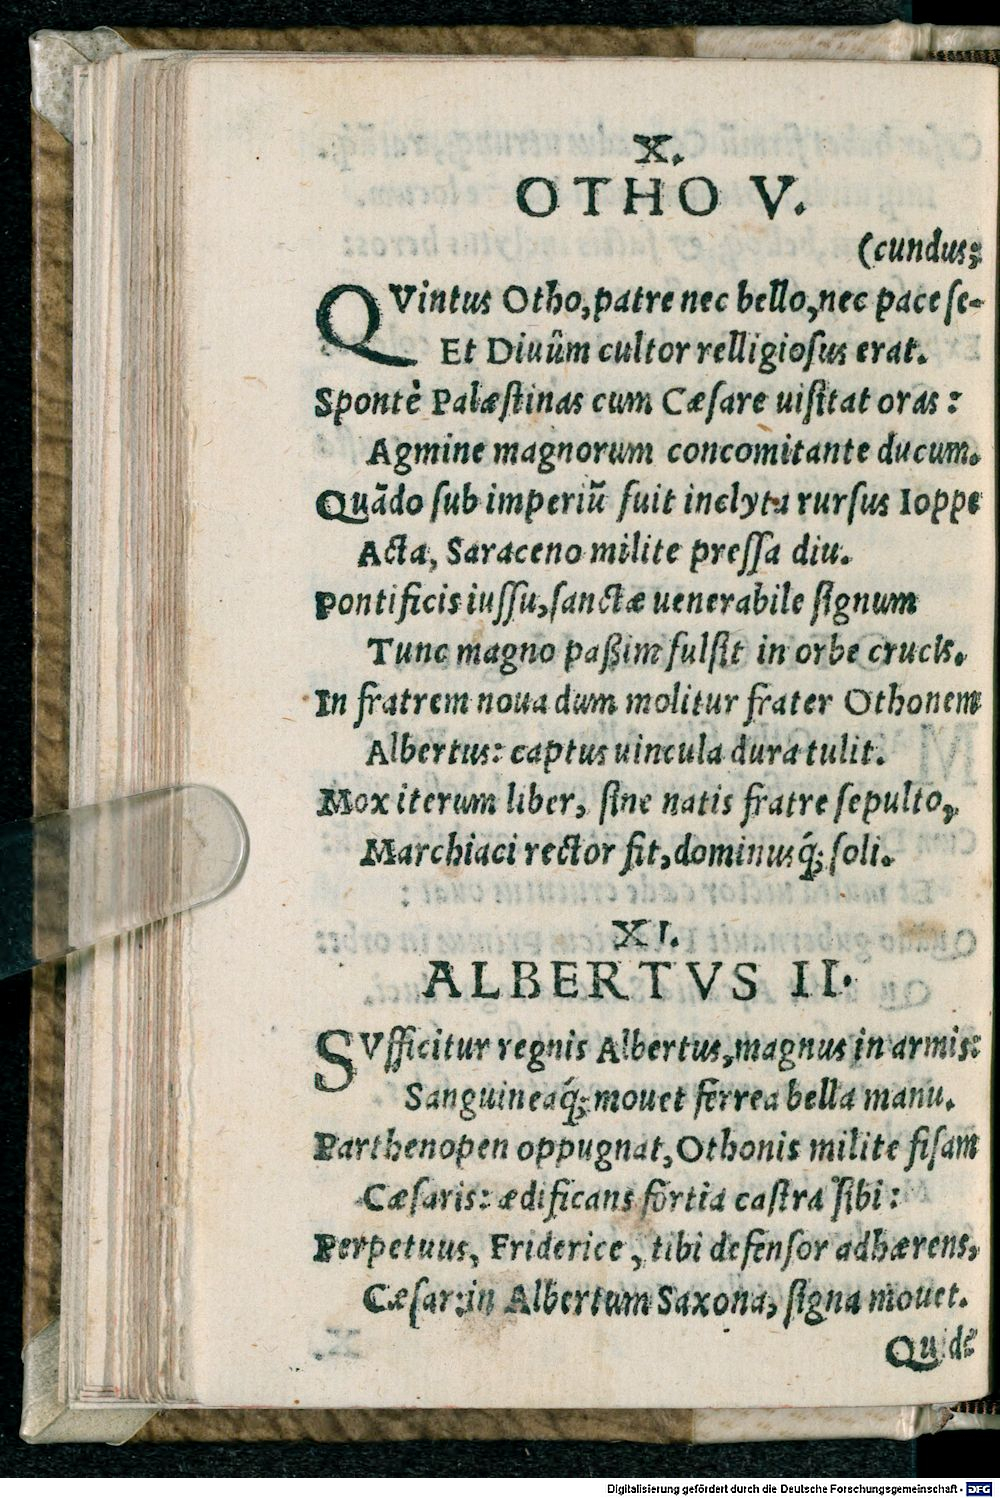 X.
OTHO V.
(cundus;
QVintus Otho, patre nec bello, nec pace se-
Et Diuûm cultor relligiosus erat.
Spontè Palæstinas cum Cæsare uisitat oras:
Agmine magnorum concomitante ducum.
Quādo sub imperiū fuit inclyta rursus Ioppe
Acta, Saraceno milite pressa diu.
Pontificis iussu, sanctæ uenerabile signum
Tunc magno paßim fulsit in orbe crucis.
In fratrem noua dum molitur frater Othonem
Albertus: captus uincula dura tulit.
Mox iterum liber, sine natis fratre sepulto,
Marchiaci rector fit, dominusq́; soli.
XI.
ALBERTVS II.
SVfficitur regnis Albertus, magnus in armis:
Sanguineaq́; mouet ferrea bella manu.
Parthenopen oppugnat, Othonis milite fisam
Cæsaris: ædificans fortia castra sibi:
Perpetuus, Friderice, tibi defensor adhærens,
Cæsar: in Albertum Saxona, signa mouet.
Quidē
Digitalisierung gefördert durch die Deutsche Forschungsgemeinschaft - DFG